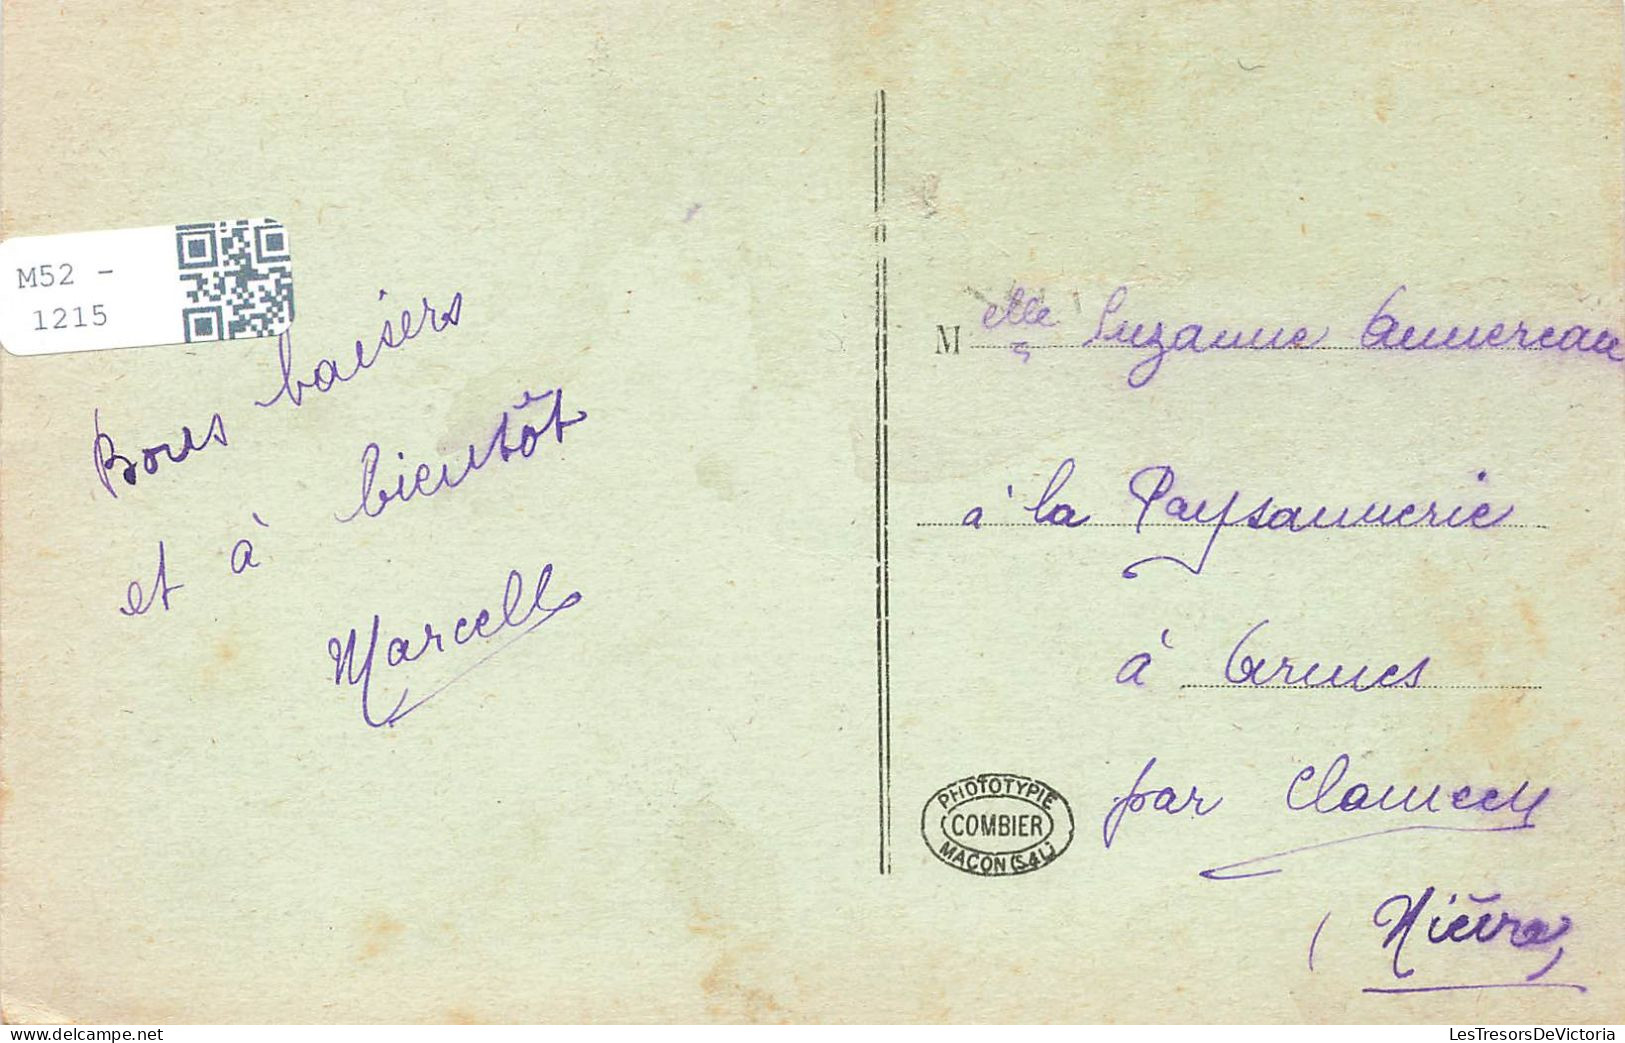 M52 -
1215
Bons baisers
et à bientôt
Marcelle
Melle Suzanne Annereau
à la Paysannerie
à Armes
par Clamecy
(Nièvre)
PHOTOTYPIE
COMBIER
MACON (S&L)
delcampe.net
LesTresorsDeVictoria